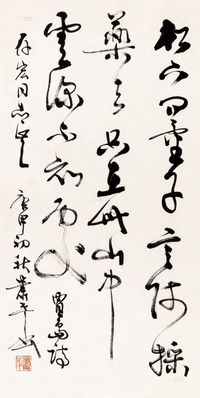 松下問童子言師採
藥去只在此山中
雲深不知処
賈島詩
宏同志正之
庚申初秋蕭平